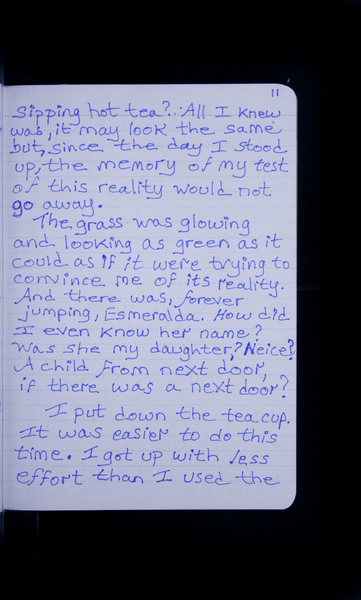 11
sipping hot tea? All I knew
was, it may look the same
but, since the day I stood
up, the memory of my test
of this reality would not
go away.
The grass was glowing
and looking as green as it
could as if it were trying to
convince me of its reality.
And there was, forever
jumping, Esmeralda. How did
I even know her name?
Was she my daughter? Neice?
A child from next door,
if there was a next door?
I put down the tea cup.
It was easier to do this
time. I got up with less
effort than I used the